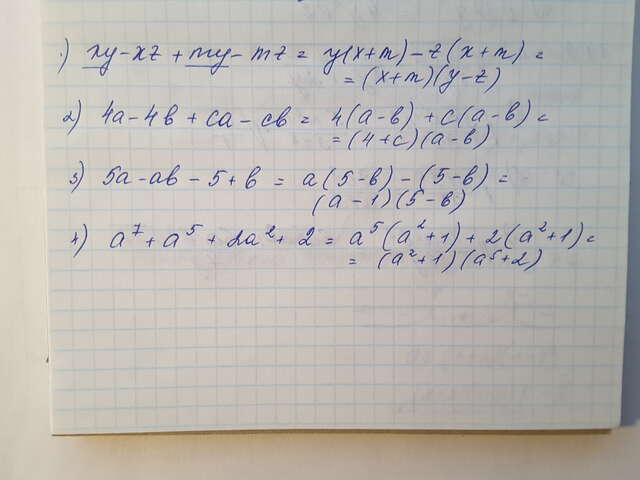 1) xy - xz + my - mz = y(x+m) - z(x+m) =
= (x+m)(y-z)
2) 4a - 4b + ca - cb = 4(a-b) + c(a-b) =
= (4+c)(a-b)
3) 5a - ab - 5 + b = a(5-b) - (5-b) =
(a-1)(5-b)
4) a⁷ + a⁵ + 2a² + 2 = a⁵(a²+1) + 2(a²+1) =
= (a²+1)(a⁵+2)